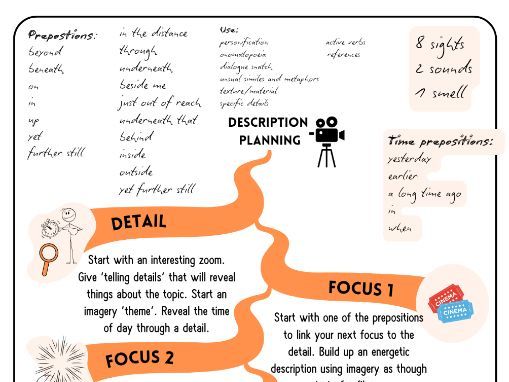 Prepostions:
beyond
beneath
on
in
up
yet
further still
in the distance
through
underneath
beside me
just out of reach
underneath that
behind
inside
outside
yet further still
Use:
personification
onomatopoeia
dialogue snatch
unusual similes and metaphors
texture/material
specific details
active verbs
references
8 sights
2 sounds
1 smell
DESCRIPTION
PLANNING
Time prepositions:
yesterday
earlier
a long time ago
in
when
DETAIL
Start with an interesting zoom.
Give 'telling details' that will reveal
things about the topic. Start an
imagery 'theme'. Reveal the time
of day through a detail.
FOCUS 1
CINEMA
CINEMA
Start with one of the prepositions
to link your next focus to the
detail. Build up an energetic
description using imagery as though
FOCUS 2